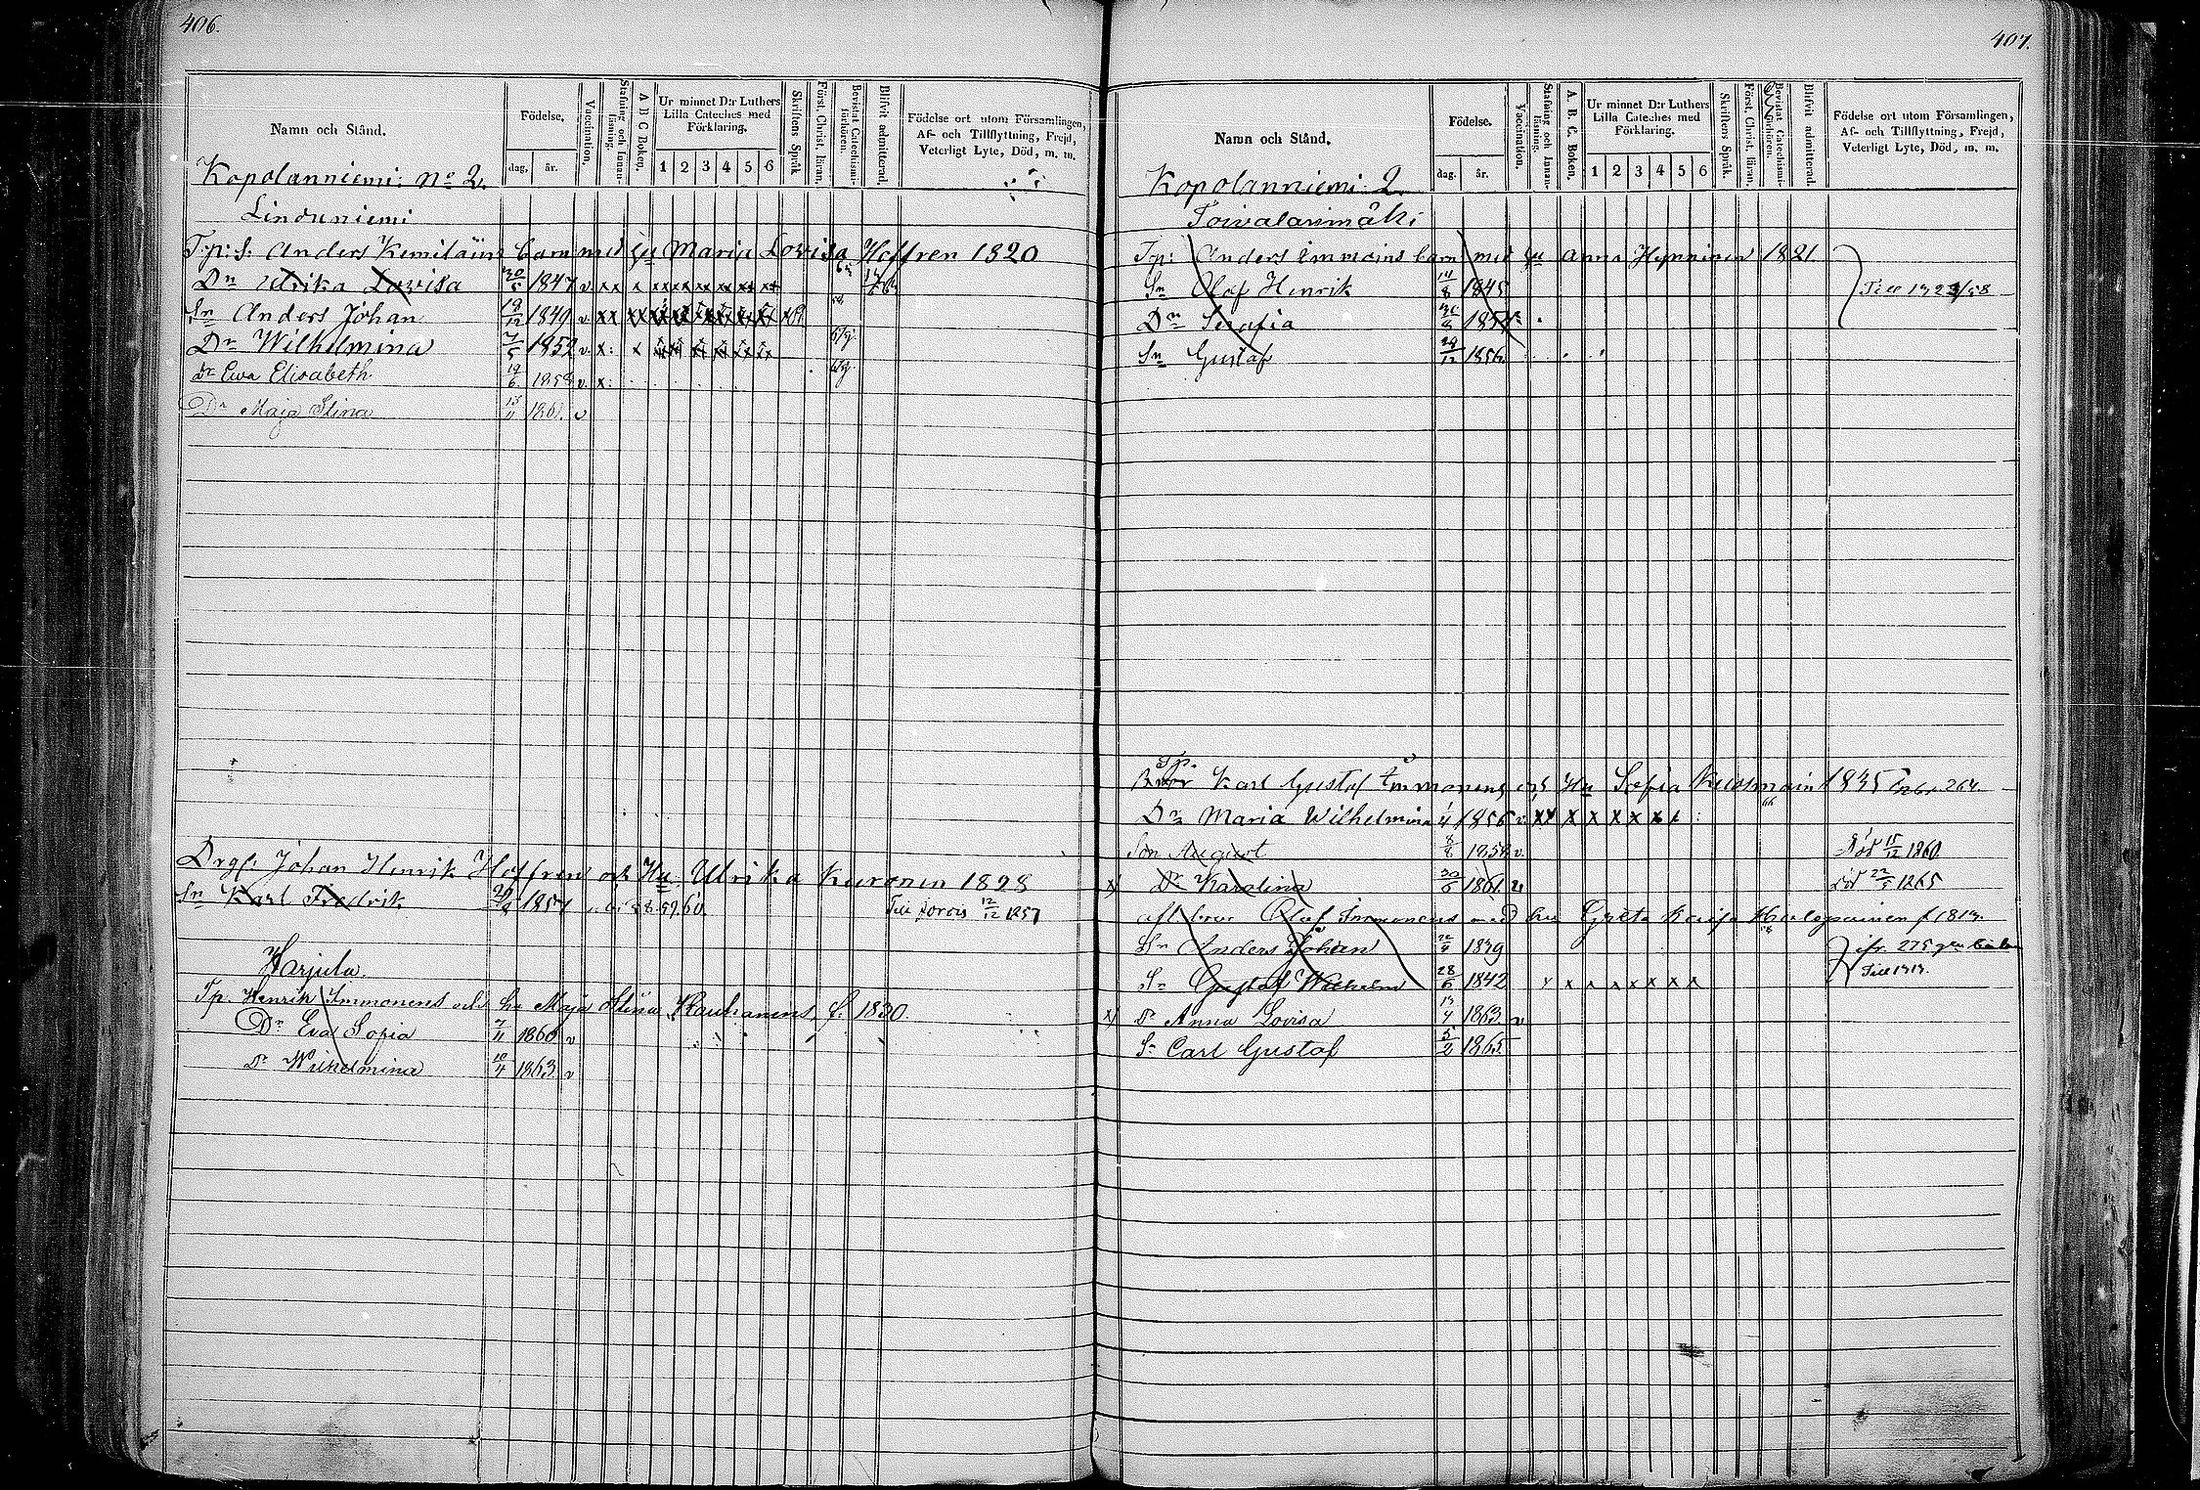 406.
Namn och Stånd.
Födelse.
dag. år.
Vaccination.
Stafning och Innanläsning.
A B C Boken.
Ur minnet D:r Luthers Lilla Cateches med Förklaring.
1 2 3 4 5 6
Skriftens Språk
Först. Christ. läran.
Bevistat Catechismiförhören.
Blifvit admitterad.
Födelse ort utom Församlingen, Af- och Tillflyttning, Frejd, Veterligt Lyte, Död, m. m.
Kopolanniemi: No 2.
Linduniemi
T:p: S: Anders Kemiläins barn med Hu Maria Lovisa Hoffren 1820
Dr Ulrika Lovisa 30/5 1847 v x x x xx xx xx xx xx xx
Sn Anders Johan 19/12 1849 v x x
Dr Wilhelmina 7/5 1852 v. x: x
Dr Ewa Elisabeth 19/6 1858 v. x:
Dr Maja Stina 13/11 1861. v
Drgl. Johan Henrik Hoffren och Hu Ulrika Kuronen 1828
Sn Karl Fredrik 1857 58. 59. 60. 12/12 1857
Harjula.
Tp. Henrik Immonens och hu Maja Stina Kauhanens, f. 1830.
Dr Eva Sofia 7/11 1860 v
Dr Wilhelmina 10/4 1863 v
407.
Namn och Stånd.
Födelse.
dag. år.
Vaccination.
Stafning och Innanläsning.
A. B. C. Boken.
Ur minnet D:r Luthers Lilla Cateches med Förklaring.
1 2 3 4 5 6
Skriftens Språk.
Först. Christ. läran.
Bevistat Catechismiförhören.
Blifvit admitterad.
Födelse ort utom Församlingen, Af- och Tillflyttning, Frejd, Veterligt Lyte, Död, m. m.
Kopolanniemi 2
Toivalanmäki
Tp: Anders Immoins barn med Hu Anna Hynninen 1821
Sn Olof Henrik 14/8 1845
Dr Serafia
Sn Gustaf 29/12 1856
Tp.
Karl Gustaf Immonens och Hu Sofia Kuosmain 1835
Dr Maria Wilhelmina 1/4 1856 v x x x x x x x x x
Son August 8/8 1858 v. Död 15/12 1860.
Dr Karolina 30/6 1861 v Död 22/5 1865
afl. bror Olof Immonens med hu Greta Kaisa f 1813.
Sn Anders Johan 22/4 1839
Sn Gustaf Wilhelm 28/6 1842 x x x x x x x x
Dr Anna Lovisa 13/4 1863 v
Sn Carl Gustaf 5/2 1865